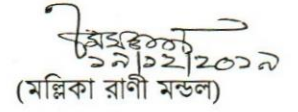 ১৯/১২/২০১৯
(মল্লিকা রাণী মন্ডল)